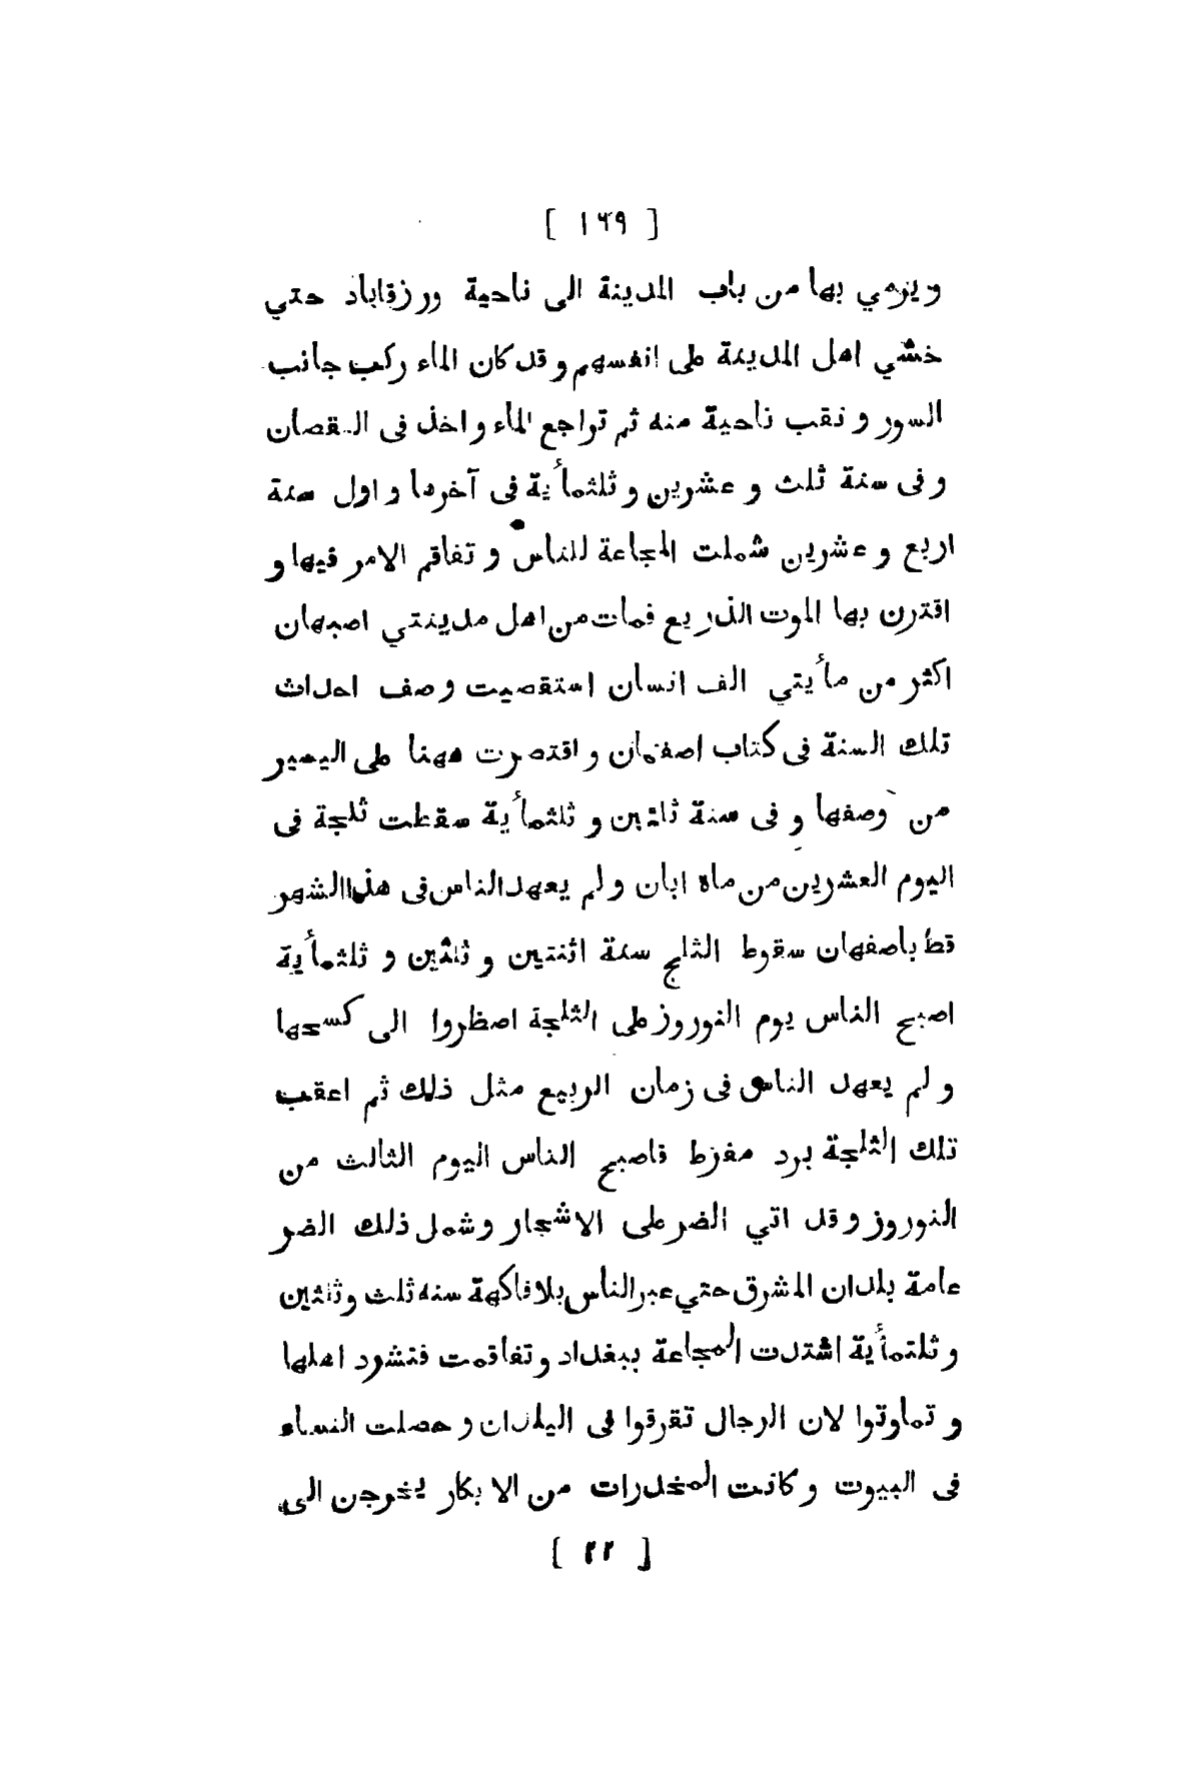 [ ١٦٩ ]
ويرمي بها من باب المدينة الى ناحية ورزقاباذ حتي
خشي اهل المدينة على انفسهم و قد كان الماء ركب جانب
السور و نقب ناحية منه ثم تراجع الماء و اخذ فى النقصان
و فى سنة ثلث و عشرين و ثلثمأية فى آخرها و اول سنة
اربع و عشرين شملت المجاعة للناس و تفاقم الامر فيها و
اقترن بها الموت الذريع فمات من اهل مدينتي اصبهان
اكثر من مأيتي الف انسان استقصيت وصف احداث
تلك السنة فى كتاب اصفهان و اقتصرت ههنا على اليسير
من وصفها و فى سنة ثلثين و ثلثمأية سقطت ثلجة فى
اليوم العشرين من ماه ابان و لم يعهد الناس فى هذا الشهر
قط باصفهان سقوط الثلج سنة اثنتين و ثلثين و ثلثمأية
اصبح الناس يوم النوروز على الثلجة اضطروا الى كسحها
و لم يعهد الناس فى زمان الربيع مثل ذلك ثم اعقب
تلك الثلجة برد مفرط فاصبح الناس اليوم الثالث من
النوروز و قد اتي الضر على الاشجار و شمل ذلك الضر
عامة بلدان المشرق حتي عبر الناس بلا فاكهة سنه ثلث و ثلثين
و ثلتمأية اشتدت المجاعة ببغداد و تفاقمت فتشرد اهلها
و تماوتوا لان الرجال تقرقوا فى اليلدان و حصلت النساء
فى البيوت و كانت المخدرات من الابكار يخرجن الى
[ ٢٢ ]